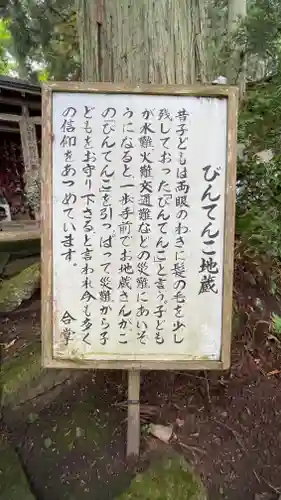 びんてんこ地蔵
昔子どもは両眼のわきに髪の毛を少し
残しておった「びんてん」こと言う。子ども
が水難火難交通難などの災難にあいそ
うになると一歩手前でお地蔵さんがこ
の「びんてん」こを引っぱって災難から子
どもをお守り下さると言われ今も多く
の信仰をあつめています。
合掌